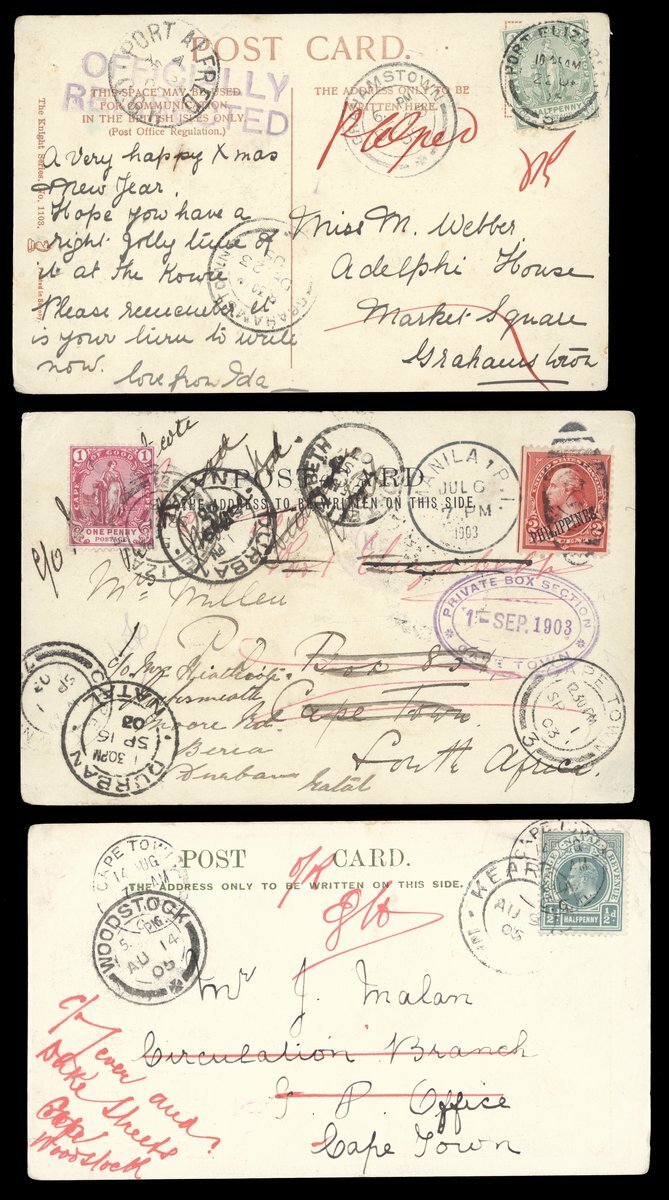 POST CARD.
PORT ALFRED
OFFICIALLY
THIS SPACE MAY BE USED
FOR COMMUNICATION
IN THE BRITISH ISLES ONLY.
(Post Office Regulation.)
THE ADDRESS ONLY TO BE
WRITTEN HERE.
PORT ELIZABETH
HALFPENNY
The Knight Series, No. 1103.
A very happy Xmas
New Year.
Hope you have a
right jolly time of
it at the Kowie
Please remember it
is your turn to write
now.
love from Ida
Miss M. Webber
Adelphi House
Market Square
Grahamstown
POST CARD
THE ADDRESS TO BE WRITTEN ON THIS SIDE.
1 1
CAPE OF GOOD
ONE PENNY
POSTAGE
DURBAN
MANILA P.I.
JUL 6
PM
1903
PHILIPPINES
c/o
PRIVATE BOX SECTION
1-SEP. 1903
CAPE TOWN
Port Elizabeth
Mrs Milleu
Box 83
Cape Town
South Africa.
Berea
Durban
Natal
DURBAN NATAL
1 30PM
SP 16
03
CAPE TOWN
12.30 PM
SP 1
03
3
POST CARD.
THE ADDRESS ONLY TO BE WRITTEN ON THIS SIDE.
CAPE TOWN
14 AUG
WOODSTOCK
AU 14
05
CAPE TOWN
AU
05
½d HALFPENNY ½d
Mr J. Malan
Circulation Branch
G P. Office
Cape Town
c/o
Dake Streets
Cape
Woodstock